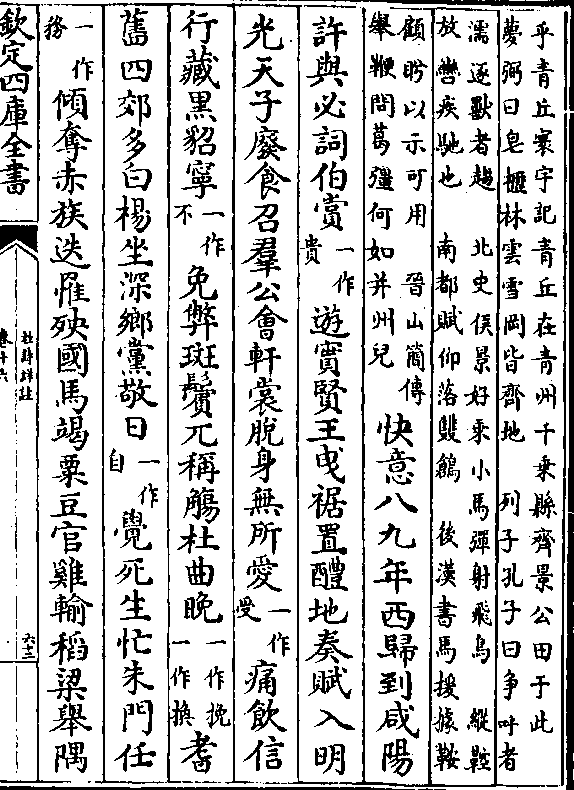 乎青丘寰宇記青丘在青州千乗縣齊景公田于此
夢弼曰皂櫪林雲雪岡皆齊地　列子孔子曰争叶者
濡逐獸者趨　北史侯景好乘小馬彈射飛鳥　縱鞚
放轡疾馳也　南都賦仰落雙鶬　後漢書馬援據鞍
顧盻以示可用　晉山簡傳
舉鞭問葛彊何如并州兒
快意八九年西歸到咸陽
許與必詞伯賞一作貴遊實賢王曵裾置醴地奏賦入明
光天子廢食召羣公會軒裳脫身無所愛一作受痛飲信
行藏黒貂寧一作不免弊斑鬢兀稱觴杜曲晚一作挽一作換耆
舊四郊多白楊坐深鄉黨敬日一作自覺死生忙朱門任一作務
傾奪赤族迭罹殃國馬竭粟豆官雞輸稻粱舉隅
欽定四庫全書
杜詩詳註
卷十六
六三